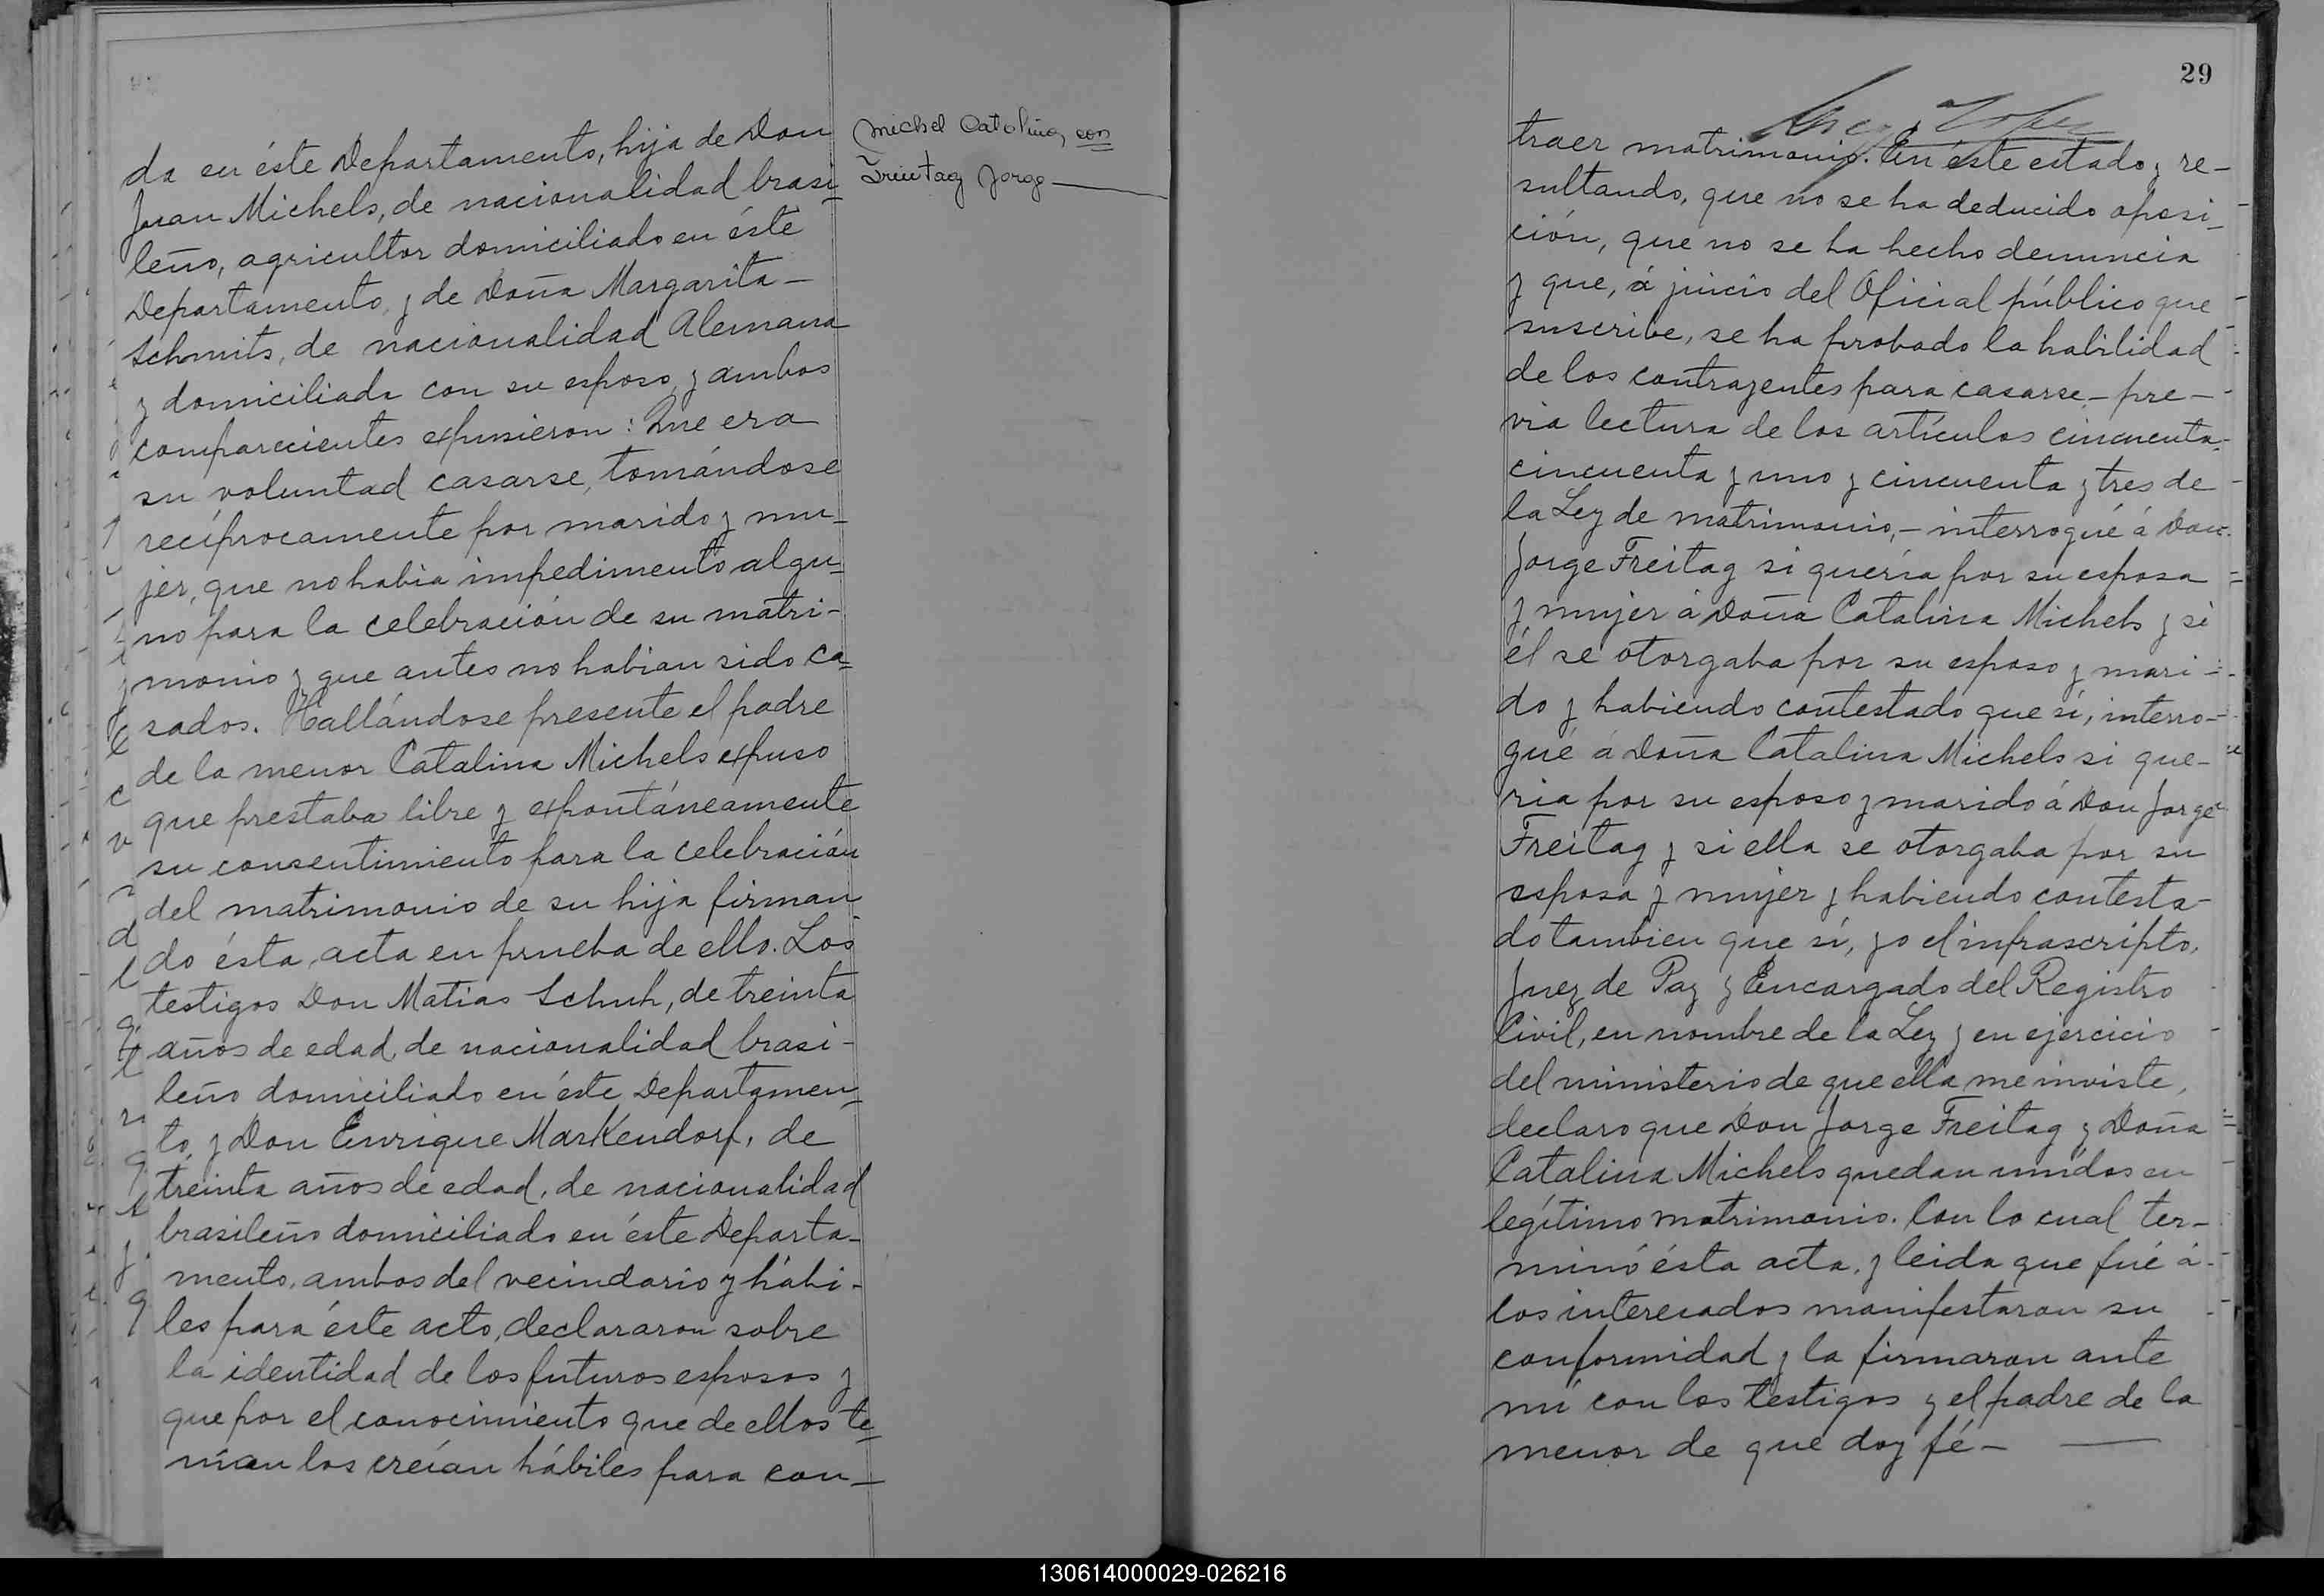 da en éste Departamento, hija de Don
Juan Michels, de nacionalidad brasi-
leño, agricultor domiciliado en éste
Departamento, y de Doña Margarita -
Schmits, de nacionalidad Alemana
y domiciliada con su esposo, y ambos
comparecientes expusieron: Que era
su voluntad casarse, tomándose
recíprocamente por marido y mu-
jer, que no habia impedimento algu-
no para la celebración de su matri-
monio y que antes no habian sido ca-
sados. Hallándose presente el padre
de la menor Catalina Michels expuso
que prestaba libre y expontáneamente
su consentimiento para la celebración
del matrimonio de su hija firman
do ésta acta en prueba de ello. Los
testigos Don Matias Schuh, de treinta
años de edad, de nacionalidad brasi-
leño domiciliado en éste Departamen-
to, y Don Enrique Markendorf, de
treinta años de edad, de nacionalidad
brasileño domiciliado en éste Departa-
mento, ambos del vecindario y hábi-
les para éste acto, declararon sobre
la identidad de los futuros esposos y
que por el conocimiento que de ellos te-
nían los creían hábiles para con-
Michel Catolina, con
Freitag Jorge
29
traer matrimonio. En éste estado, y re-
sultando, que no se ha deducido oposi-
ción, que no se ha hecho denuncia
y que, á juicio del Oficial público que
suscribe, se ha probado la habilidad
de los contrayentes para casarse, - pre-
via lectura de los artículos cincuenta,
cincuenta y uno y cincuenta y tres de
la Ley de matrimonio, - interrogué á Don
Jorge Freitag si quería por su esposa
y mujer á Doña Catalina Michels y si
él se otorgaba por su esposo y mari-
do y habiendo contestado que sí, interro-
gué á Doña Catalina Michels si que-
ria por su esposo y marido á Don Jorge
Freitag y si ella se otorgaba por su
esposa y mujer y habiendo contesta-
do tambien que sí, yo el infrascripto,
Juez de Paz y Encargado del Registro
Civil, en nombre de la Ley y en ejercicio
del ministerio de que ella me inviste,
declaro que Don Jorge Freitag y Doña
Catalina Michels quedan unidos en
legítimo matrimonio. Con lo cual ter-
minó ésta acta, y leida que fué á
los interesados manifestaron su
conformidad y la firmaron ante
mí con los testigos y el padre de la
menor de que doy fé -
130614000029-026216